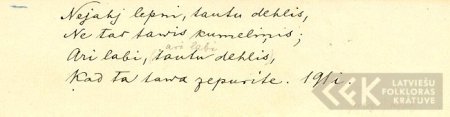 Nejahj lepni, tautu dehlis,
Ne tas tawis kumeliņis;
ari labi
Ari labi, tautu dehlis,
Kad ta tawa zepurite. 1911.
LATVIEŠU
LFK FOLKLORAS
KRATUVE